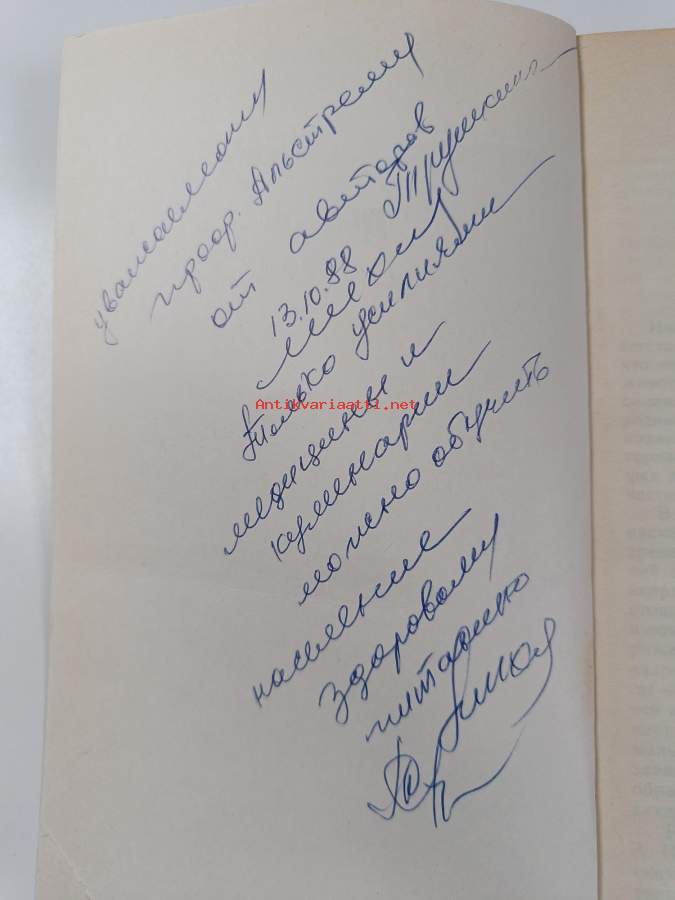 уважаемому
проф. Альстрему
от авторов
13.10.88 Трушкина
Только усилиями
Antikvariaatti.net
медицины и
кулинарии
можно обучить
население
здоровому
питанию